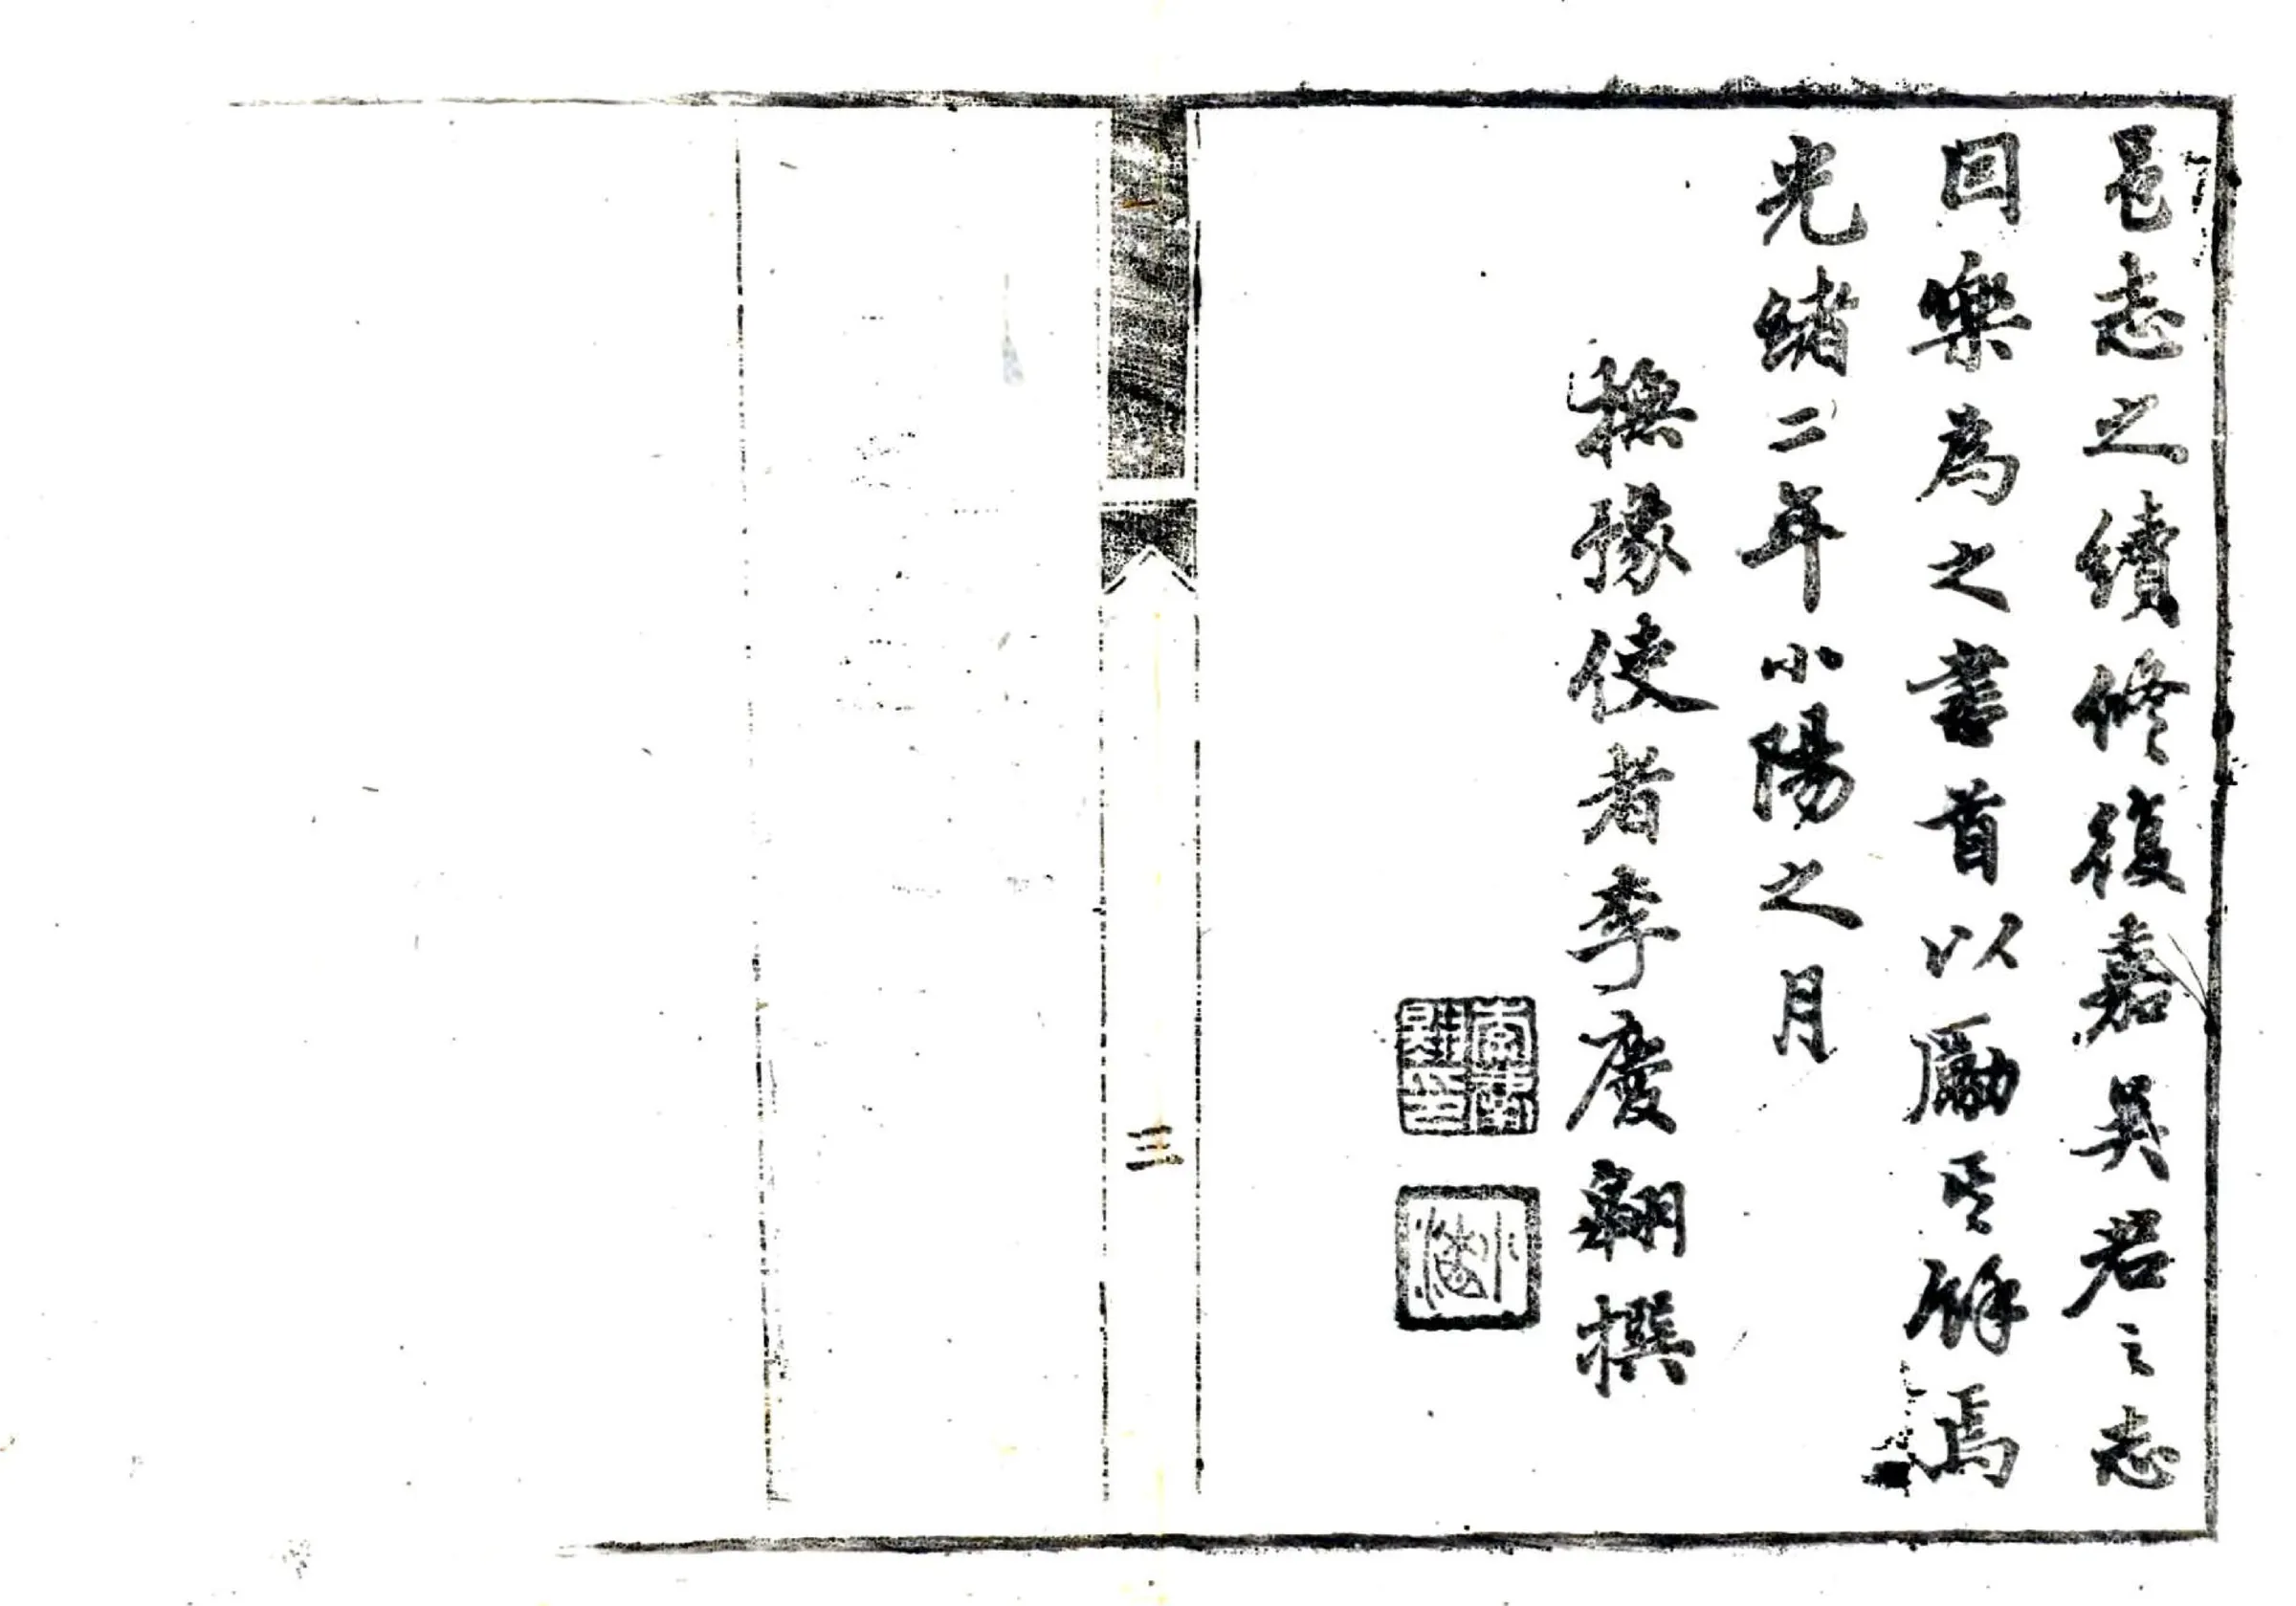 邑志之續修復嘉吳君之志
因樂爲之書首以勵其餘焉
光緒二年小陽之月
撫豫使者李慶翱撰
三